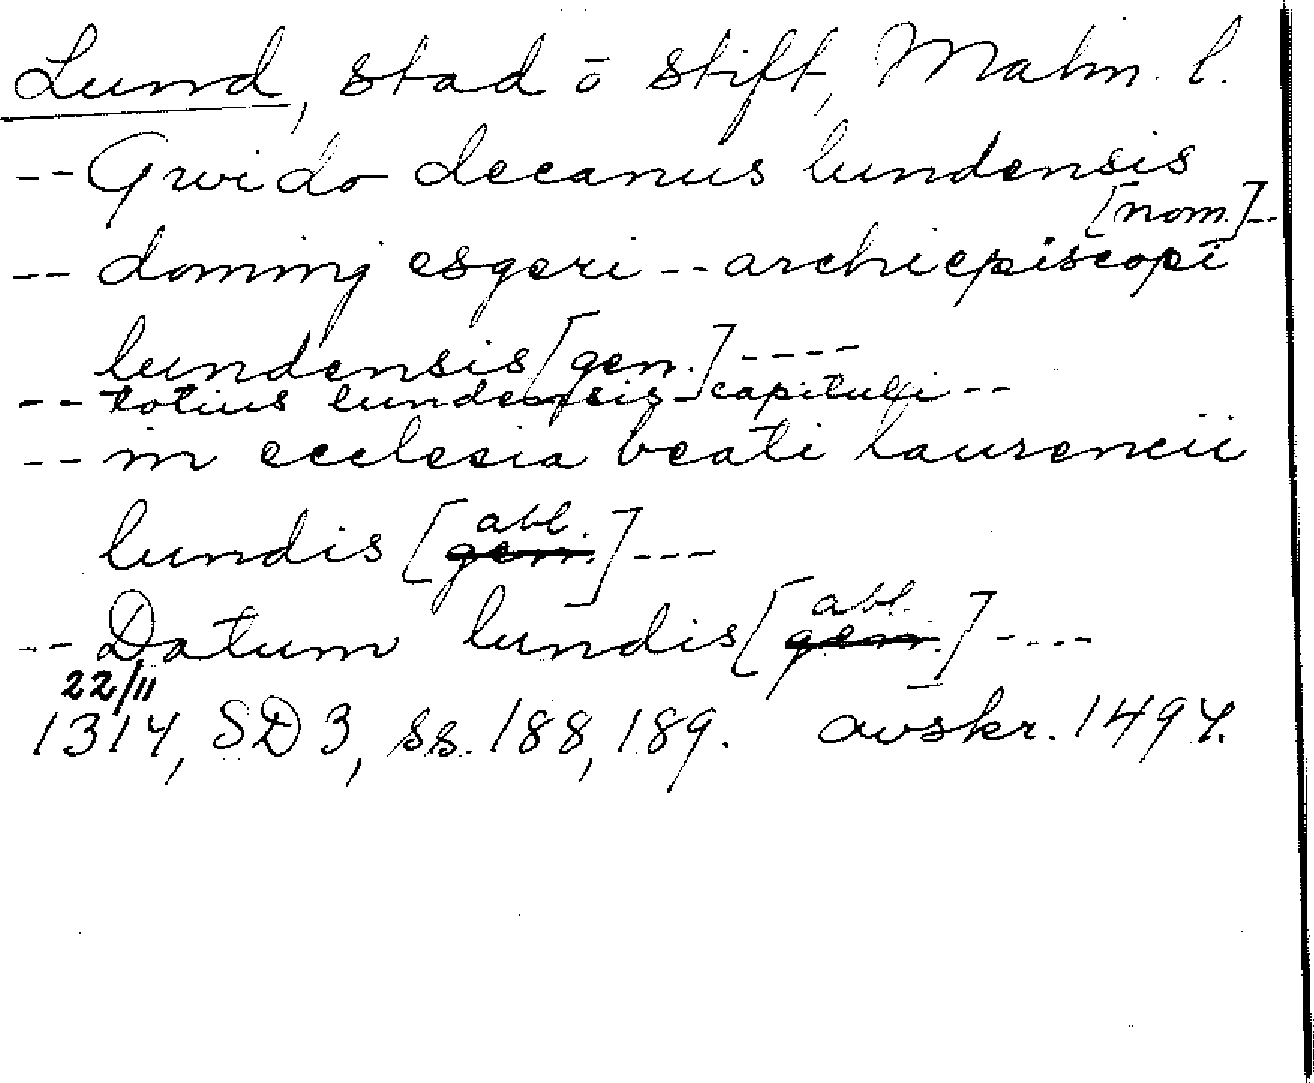 Lund, stad o stift, Malm. l.
-- Gwido decanus lundensis
[nom.]--
-- dominj esgeri -- archiepiscopi
lundensis [gen.] ----
-- totius lundensis capituli --
-- in ecclesia beati laurencii
lundis [abl. gen.] ---
-- Datum lundis [abl. gen.] ----
22/11
1314, SD 3, ss. 188, 189. avskr. 1494.